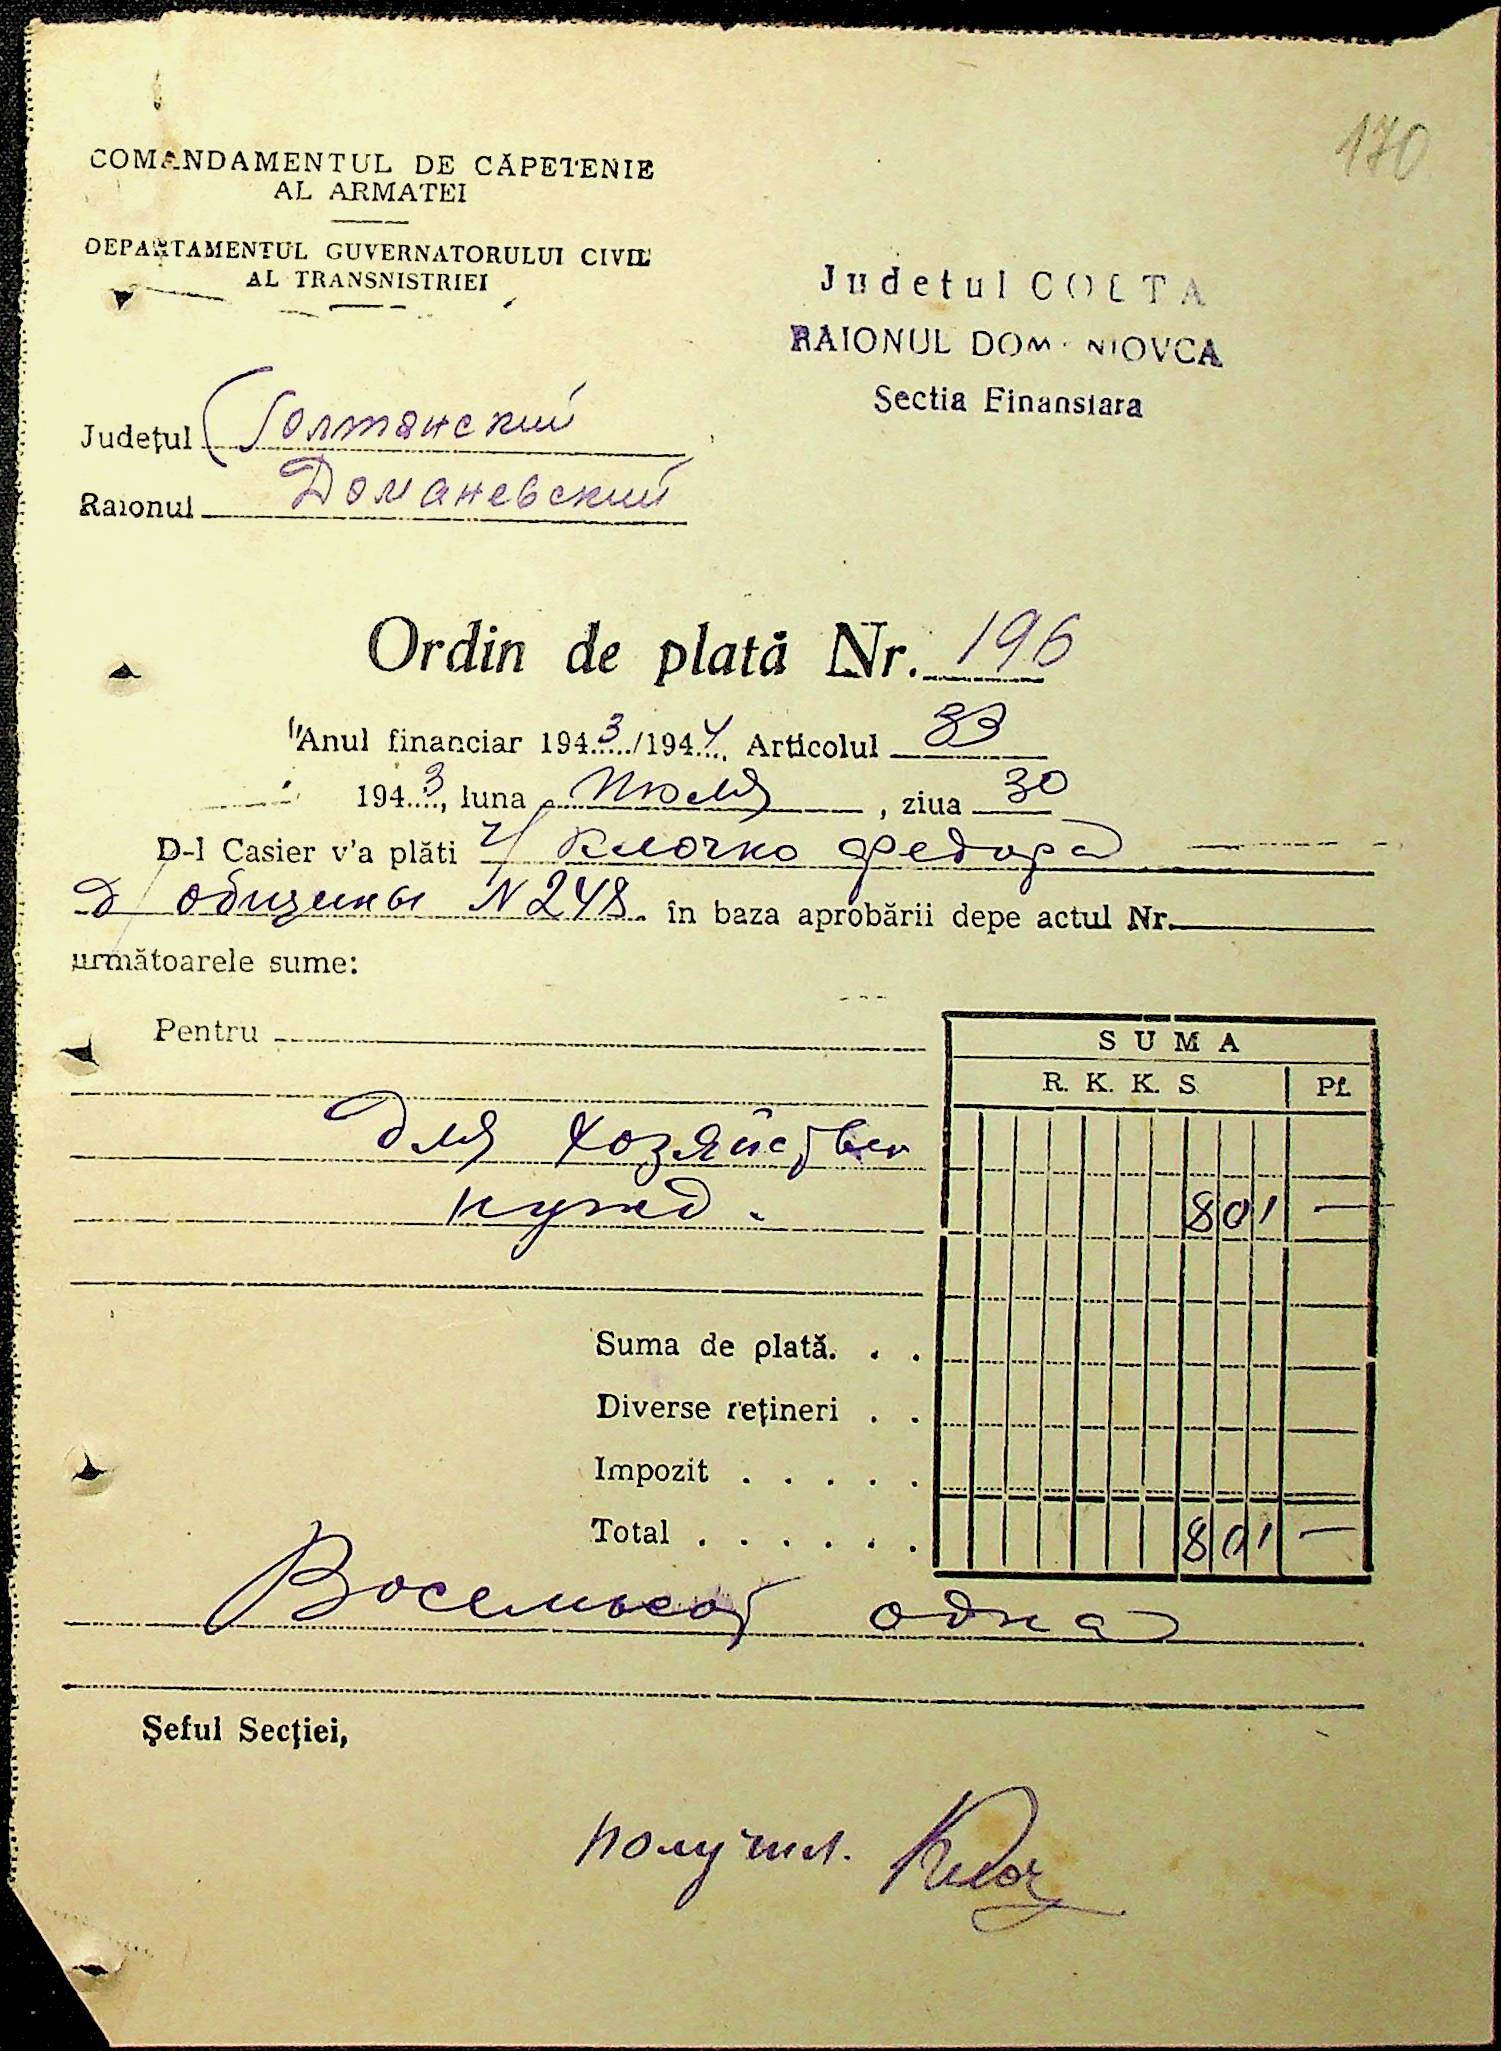 170
COMANDAMENTUL DE CĂPETENIE
AL ARMATEI
DEPARTAMENTUL GUVERNATORULUI CIVIL
AL TRANSNISTRIEI
Judetul COLTA
RAIONUL DOM NIOVCA
Sectia Finansiara
Județul Голтянский
Raionul Доманевский
Ordin de plată Nr. 196
Anul financiar 1943/1944, Articolul 83
1943, luna Июля, ziua 30
D-l Casier v'a plăti ч/ Клочко Федора
д/ общины N 248 în baza aprobării depe actul Nr.
următoarele sume:
Pentru
SUMA
R. K. K. S. Pf.
для хозяйствен
нужд. 801 —
Suma de plată. . .
Diverse rețineri . .
Impozit . . . . .
Total . . . . . . 801 —
Восемьсот одна
Șeful Secției,
получил. Клоч